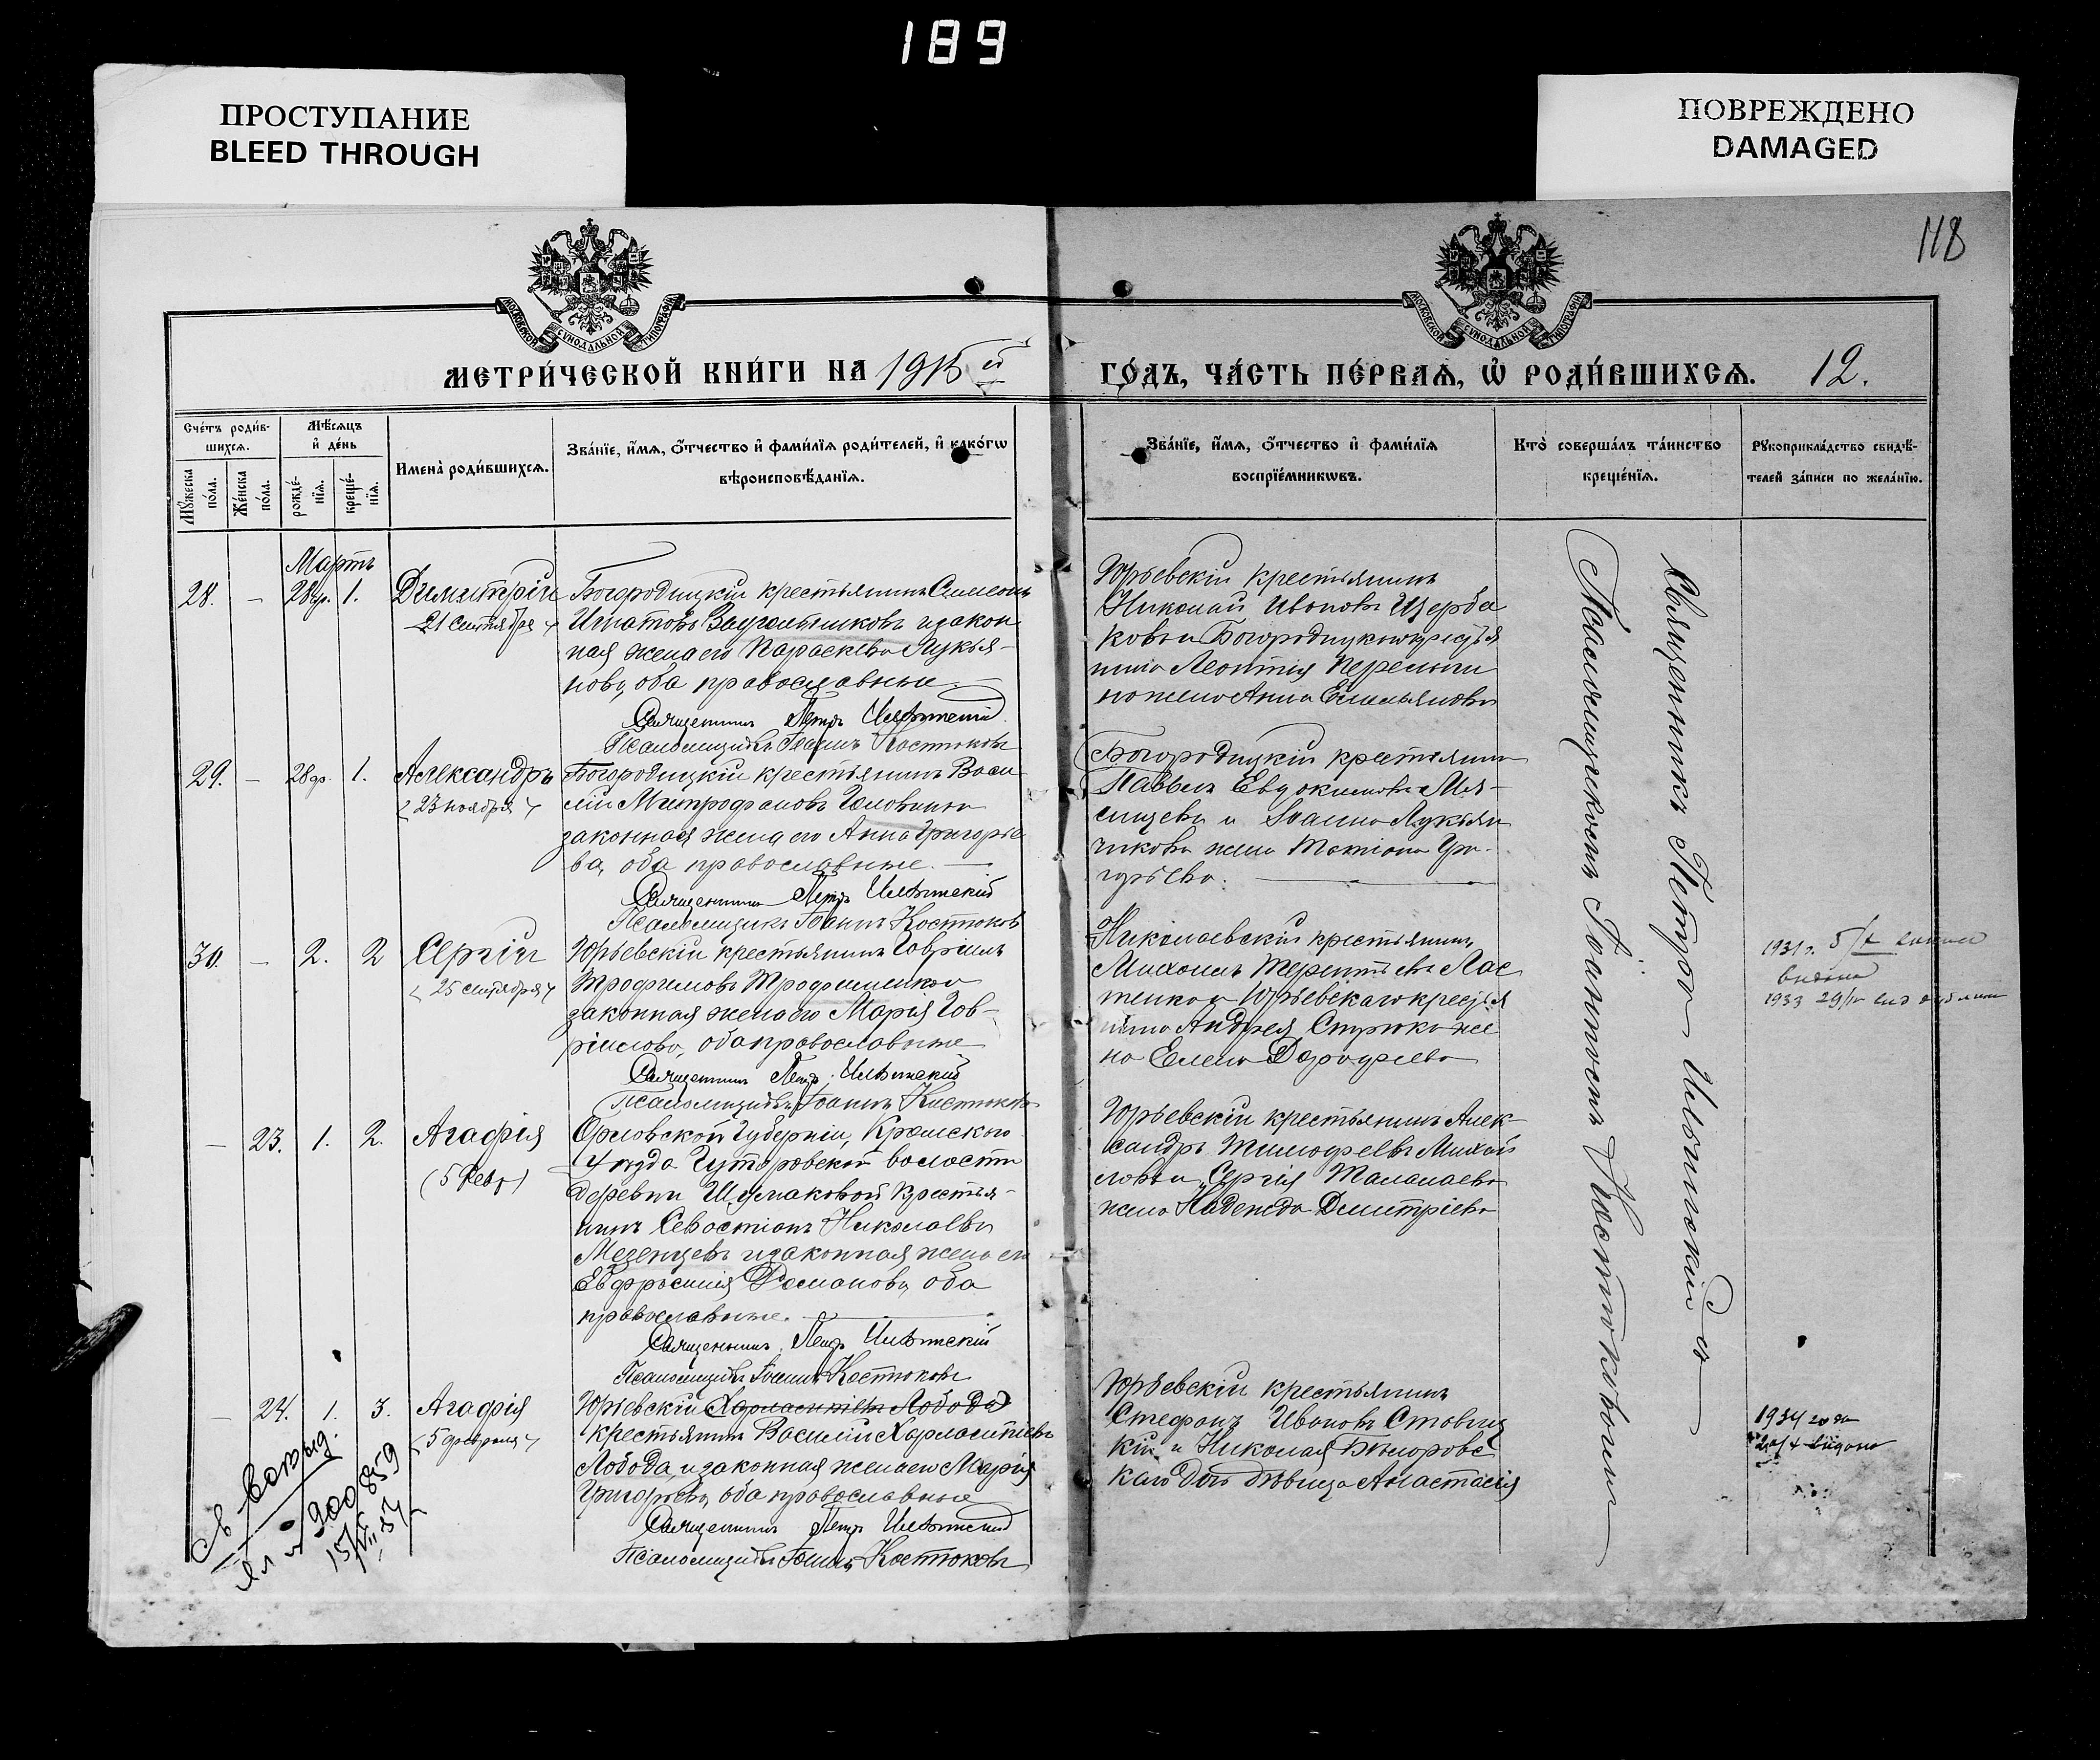 189
ПРОСТУПАНИЕ
BLEED THROUGH
ПОВРЕЖДЕНО
DAMAGED
118
МОСКОВСКОЙ СѴНОДАЛЬНОЙ ТИПОГРАФІИ
МОСКОВСКОЙ СѴНОДАЛЬНОЙ ТИПОГРАФІИ
МЕТРИ́ЧЕСКОЙ КНИ́ГИ НА 1915 й
ГО́ДЪ, ЧА́СТЬ ПЕ́РВАѦ, Ѡ҆ РОДИ́ВШИХСѦ. 12.
Сче́тъ роди́в-
шихсѧ.
Мꙋ́жеска
по́ла.
Же́нска
по́ла.
Мѣ́сѧцъ
и҆ де́нь
рожде́-
нїѧ.
креще́-
нїѧ.
Имена̀ роди́вшихсѧ.
Зва́нїе, и҆́мѧ, ѻ҆́тчество и҆ фами́лїѧ роди́телей, и҆ како́гѡ
вѣроисповѣ́данїѧ.
Зва́нїе, и҆́мѧ, ѻ҆́тчество и҆ фами́лїѧ
воспрїе́мникѡвъ.
Кто̀ соверша́лъ та́инство
креще́нїѧ.
Рꙋкоприкла́дство свидѣ́-
телей за́писи по жела́нїю.
Мартъ
28. – 28 фр. 1. Димитрій
21 сентября
Богородицкій крестьянинъ Симеонъ
Игнатовъ и закон
ная жена его Параскева Лукья-
нова, оба православные.
Священникъ Петръ
Псаломщикъ Іоаннъ Костюковъ
Юрьевскій крестьянинъ
Николай Ивановъ Щерба
ковъ и Богородицкаго крестья
нина Леонтія
жена Анна Емельянова
29. – 28 фр. 1. Александръ
23 ноября
Богородицкій крестьянинъ Васи
лій Митрофановъ Головинъ и
законная жена его Анна Григорье
ва, оба православные.
Священникъ Петръ
Псаломщикъ Іоаннъ Костюковъ
Богородицкій крестьянинъ
Павелъ Евдокимовъ Мя-
сищевъ и Іоанна Лукьян
чикова жена Татіана Гри-
горьева.
30. – 2. 2 Сергій
25 сентября
Юрьевскій крестьянинъ Гавріилъ
Трофимовъ Трофименко и
законная жена его Марія Гав-
ріилова, оба православные
Священникъ Петръ
Псаломщикъ Іоаннъ Костюковъ
Николаевскій крестьянинъ
Михаилъ Терентьевъ Лас
тенко и Юрьевскаго крестья
нина Андрея же
на Елена Дорофеева
1931 г. 5/X
видана
1933 29/IV
– 23. 1. 2. Агафія
(5 Февр)
Орловской губерніи, Кромскаго
уѣзда Гуторовской волости
деревни Шумаковой крестья-
нинъ Севастіанъ Николаевъ
Мезенцевъ и законная жена его
Евфросинія Романова, оба
православные.
Священникъ Петръ
Псаломщикъ Іоаннъ Костюковъ
Юрьевскій крестьянинъ Алек-
сандръ Тимофеевъ Михай
ловъ и Сергія Маланаева
жена Надежда Димитріева
– 24. 1. 3. Агафія
5 февраля
Юрьевскій Харлампіевъ Лобода
крестьянинъ Василій Харлампіевъ
Лобода и законная жена его Марія
Григорьева, оба православные
Священникъ Петръ
Псаломщикъ Іоаннъ Костюковъ
Юрьевскій крестьянинъ
Стефанъ Ивановъ
кій и Николая Бѣлоровс
каго дочь дѣвица Анастасія
1934 года
видано
Священникъ Петръ и
Псаломщикомъ Іоанномъ Костюковымъ
св выд.
900859